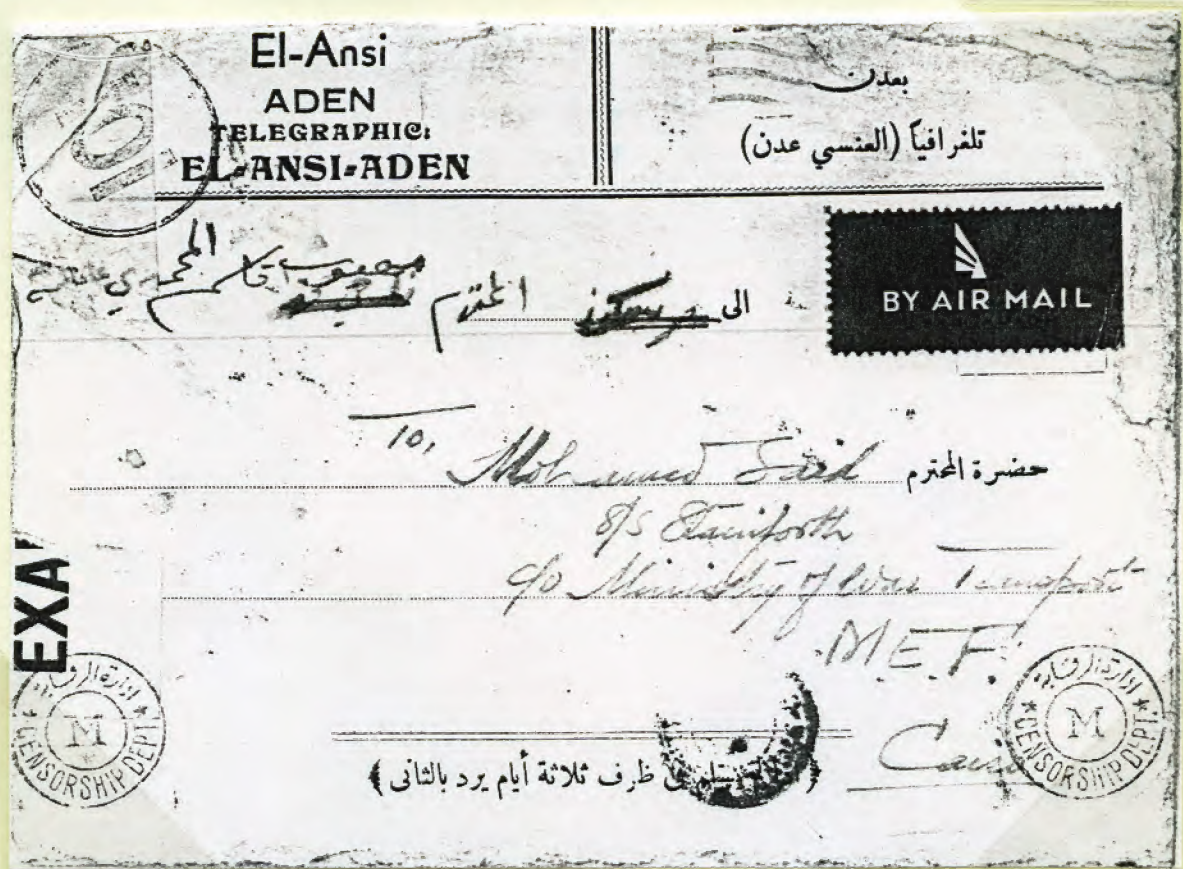 El-Ansi
ADEN
TELEGRAPHIC:
EL-ANSI-ADEN
بعدن
تلغرافياً (العنسي عدن)
BY AIR MAIL
الى المحترم
حضرة المحترم Mohamed Said
101
S/S Staniforth
c/o Ministry of War Transport
M.E.F.
Cairo
EXA
ادارة الرقابة
M
CENSORSHIP DEPT.
ادارة الرقابة
M
CENSORSHIP DEPT.
ظرف ثلاثة أيام يرد بالثانى ﴾